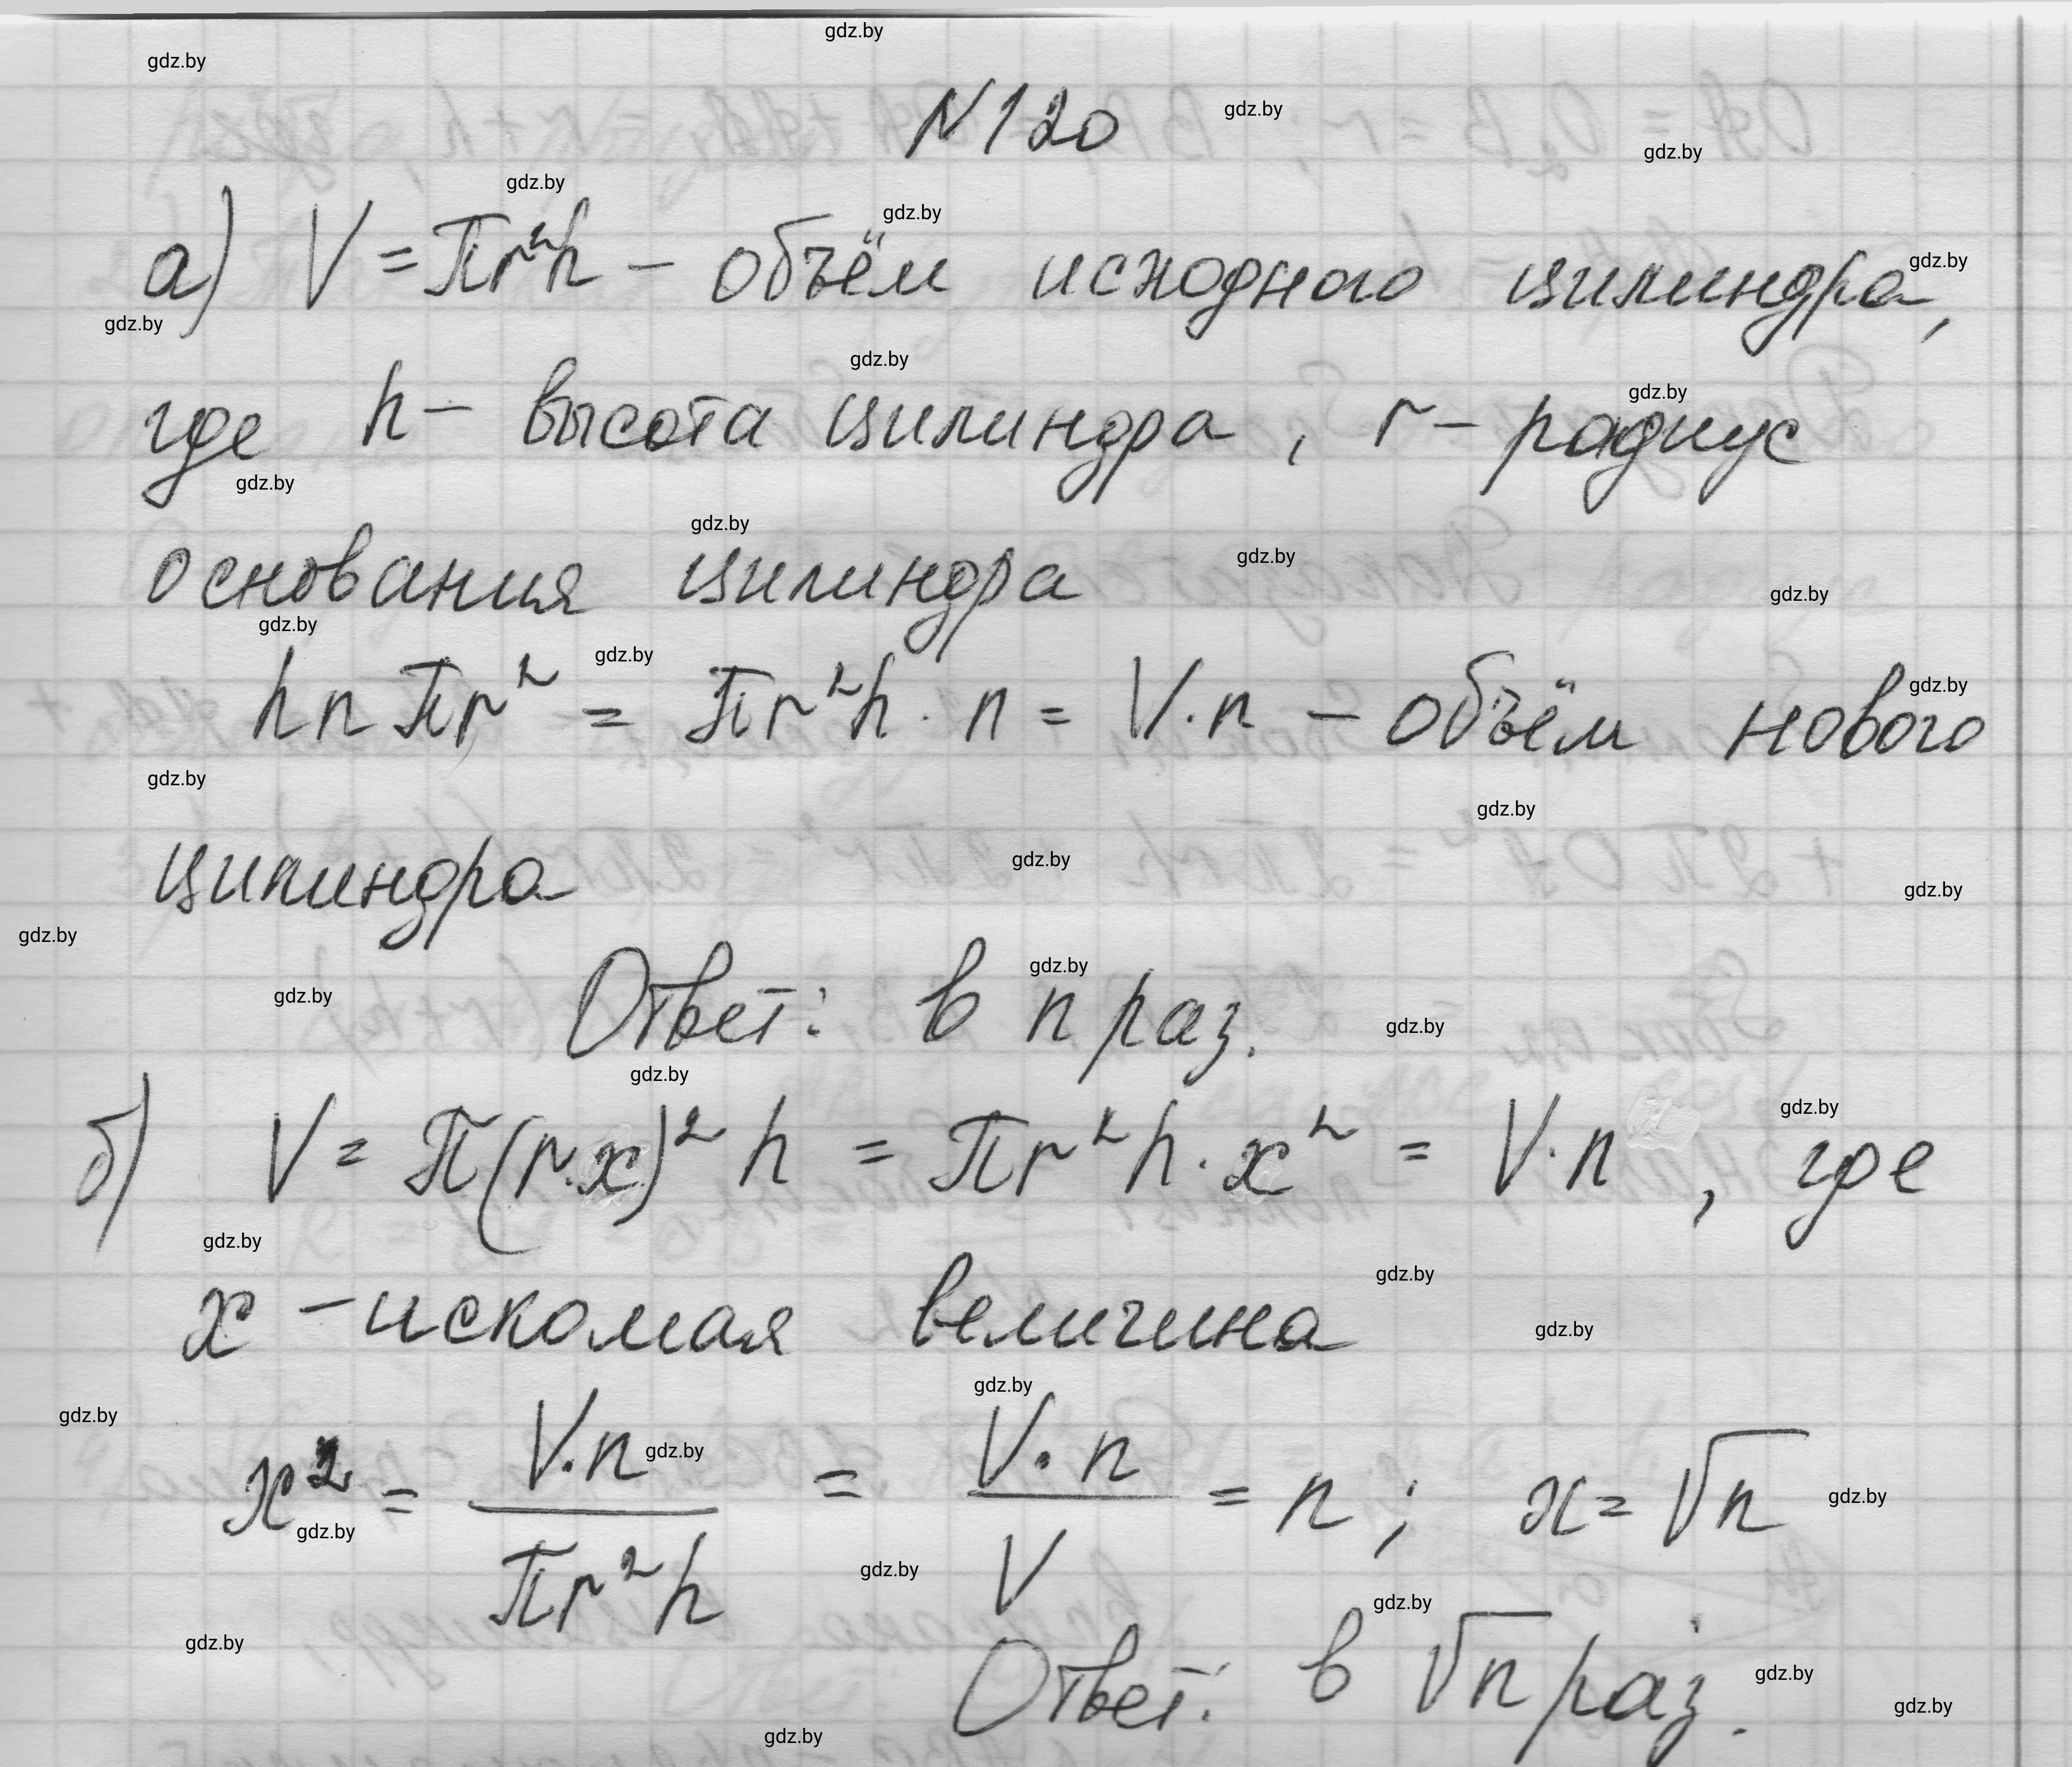 N120
а) V = πr²h – объём исходного цилиндра,
где h – высота цилиндра, r – радиус
основания цилиндра
hnπr² = πr²h · n = V · n – объём нового
цилиндра
Ответ: в n раз.
б) V = π(r·x)² h = πr²h · x² = V · n, где
x – искомая величина
x² = V·n / πr²h = V·n / V = n; x = √n
Ответ: в √n раз.
gdz.by